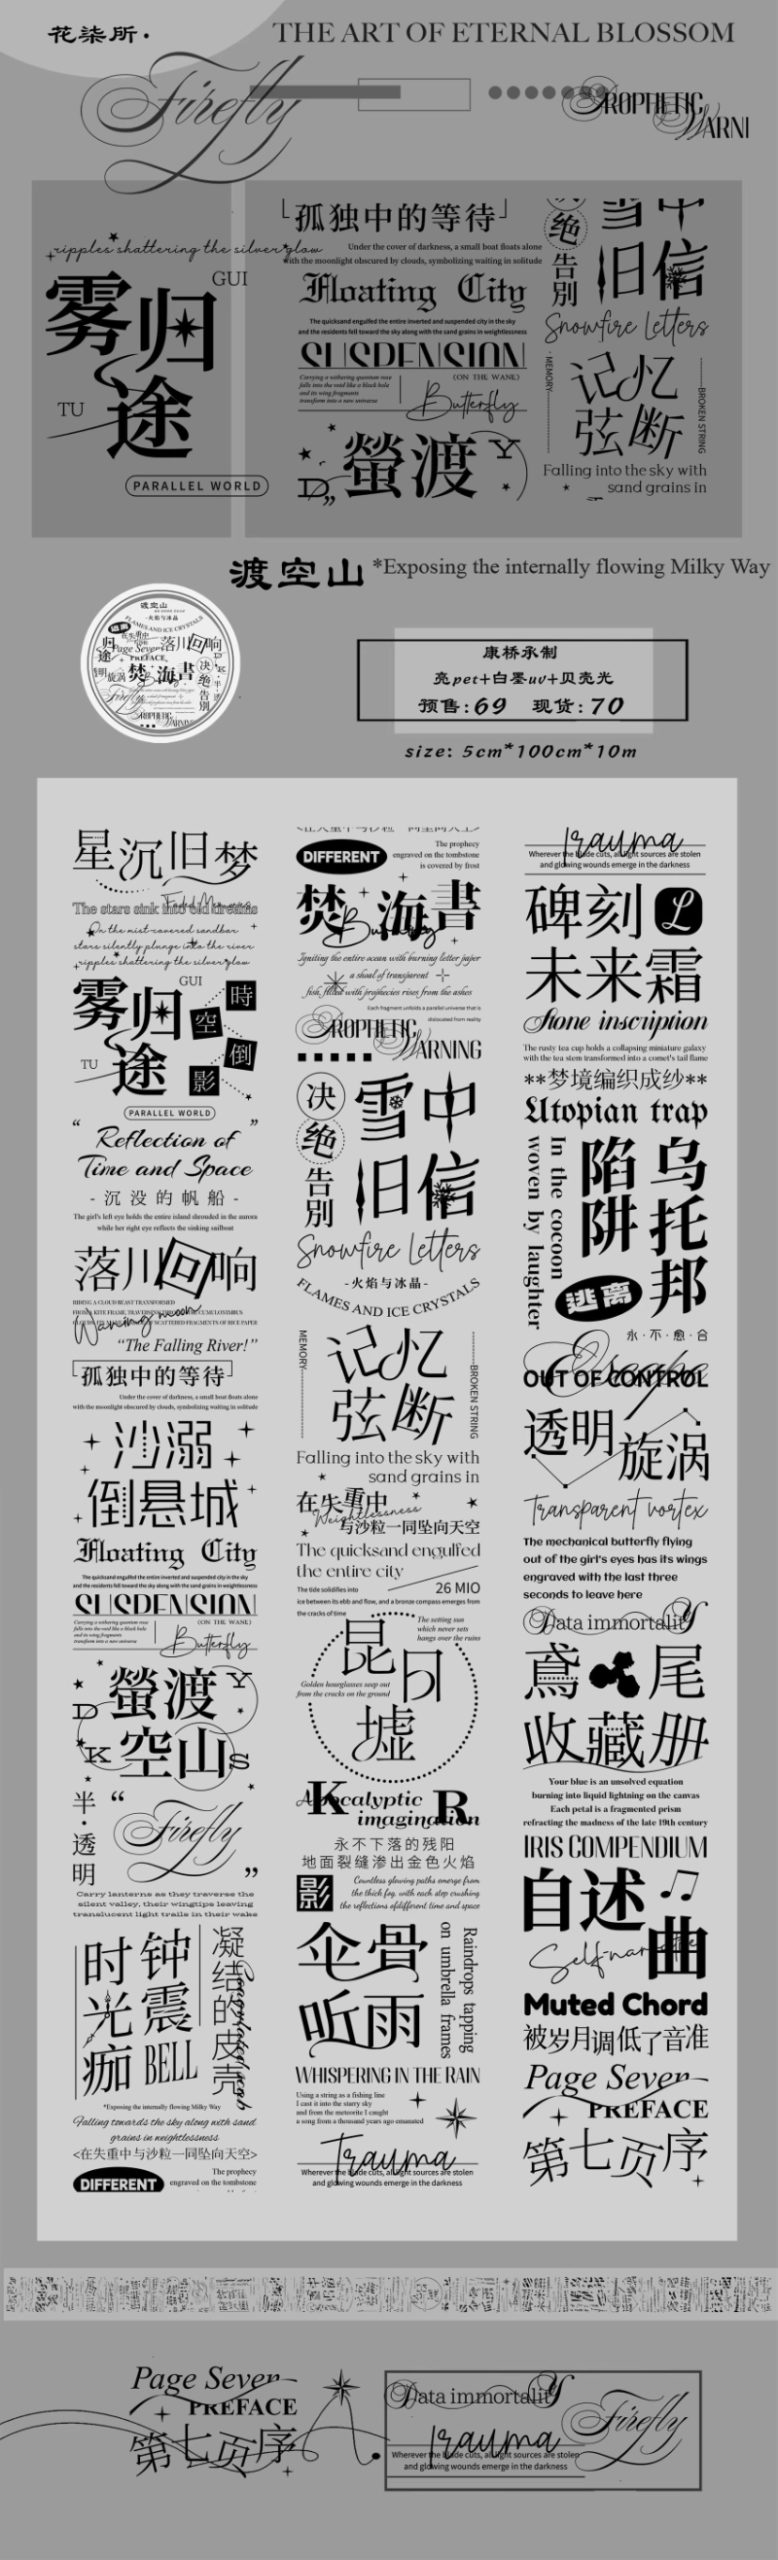 花柒所·
THE ART OF ETERNAL BLOSSOM
Firefly
PROPHETIC
WARNI
ripples shattering the silver glow
GUI
雾归
途
TU
PARALLEL WORLD
「孤独中的等待」
Under the cover of darkness, a small boat floats alone
with the moonlight obscured by clouds, symbolizing waiting in solitude
Floating City
The quicksand engulfed the entire inverted and suspended city in the sky
and the residents fell toward the sky along with the sand grains in weightlessness
SUSPENSION
Carrying a withering quantum rose
falls into the void like a black hole
and its wing fragments
transform into a new universe
(ON THE WANE)
Butterfly
螢渡
Y
D
决
绝
告
别
雪中
旧信
Snowfire Letters
MEMORY
记忆
弦断
BROKEN STRING
Falling into the sky with
sand grains in
渡空山
*Exposing the internally flowing Milky Way
康桥承制
亮pet+白墨uv+贝壳光
预售:69 现货:70
size: 5cm*100cm*10m
星沉旧梦
The stars sink into old dreams
On the mist-covered sandbar
stars silently plunge into the river
ripples shattering the silver glow
GUI
雾归
途
TU
時
空
倒
影
PARALLEL WORLD
“ Reflection of ”
Time and Space
- 沉没的帆船 -
The girl's left eye holds the entire island shrouded in the aurora
while her right eye reflects the sinking sailboat
落川回响
RIDING A CLOUD BEAST TRANSFORMED
Waning moon
“The Falling River!”
「孤独中的等待」
Under the cover of darkness, a small boat floats alone
with the moonlight obscured by clouds, symbolizing waiting in solitude
沙溺
倒悬城
Floating City
The quicksand engulfed the entire inverted and suspended city in the sky
and the residents fell toward the sky along with the sand grains in weightlessness
SUSPENSION
Carrying a withering quantum rose
falls into the void like a black hole
and its wing fragments
transform into a new universe
(ON THE WANE)
Butterfly
螢渡
空山
D
Y
K
S
半·透明
“ Firefly ”
Carry lanterns as they traverse the
silent valley, their wingtips leaving
translucent light trails in their wake
时光痂
钟震
BELL
凝结的皮壳
Coagulated scab
*Exposing the internally flowing Milky Way
Falling towards the sky along with sand
grains in weightlessness
<在失重中与沙粒一同坠向天空>
DIFFERENT
The prophecy
engraved on the tombstone
<在失重中与沙粒一同坠向天空>
DIFFERENT
The prophecy
engraved on the tombstone
is covered by frost
焚海書
Burning
Igniting the entire ocean with burning letter paper
a shoal of transparent
fish, filled with prophecies rises from the ashes
Each fragment unfolds a parallel universe that is
dislocated from reality
PROPHETIC
WARNING
决
绝
告
别
雪中
旧信
Snowfire Letters
-火焰与冰晶-
FLAMES AND ICE CRYSTALS
MEMORY
记忆
弦断
BROKEN STRING
Falling into the sky with
sand grains in
在失重中
Weightlessness
与沙粒一同坠向天空
The quicksand engulfed
the entire city
26 MIO
The tide solidifies into
ice between its ebb and flow, and a bronze compass emerges from
the cracks of time
The setting sun
which never sets
hangs over the ruins
昆日墟
Golden hourglasses seep out
from the cracks on the ground
K
R
Apocalyptic
imagination
永不下落的残阳
地面裂缝渗出金色火焰
影
Countless glowing paths emerge from
the thick fog, with each step crushing
the reflections ofdifferent time and space
伞骨
听雨
Raindrops tapping
on umbrella frames
WHISPERING IN THE RAIN
Using a string as a fishing line
I cast it into the starry sky
and from the meteorite I caught
a song from a thousand years ago emanated
Trauma
Wherever the blade cuts, all light sources are stolen
and glowing wounds emerge in the darkness
Trauma
Wherever the blade cuts, all light sources are stolen
and glowing wounds emerge in the darkness
碑刻
L
未来霜
Stone inscription
The rusty tea cup holds a collapsing miniature galaxy
with the tea stem transformed into a comet's tail flame
**梦境编织成纱**
Utopian trap
In the cocoon
woven by laughter
陷阱
乌托邦
逃离
永·不·愈·合
OUT OF CONTROL
透明
旋涡
Transparent vortex
The mechanical butterfly flying
out of the girl's eyes has its wings
engraved with the last three
seconds to leave here
Data immortality
鸢尾
收藏册
Your blue is an unsolved equation
burning into liquid lightning on the canvas
Each petal is a fragmented prism
refracting the madness of the late 19th century
IRIS COMPENDIUM
自述
曲
Self-narrative
Muted Chord
被岁月调低了音准
Page Seven
PREFACE
第七页序
Page Seven
PREFACE
第七页序
Data immortality
Trauma
Firefly
Wherever the blade cuts, all light sources are stolen
and glowing wounds emerge in the darkness